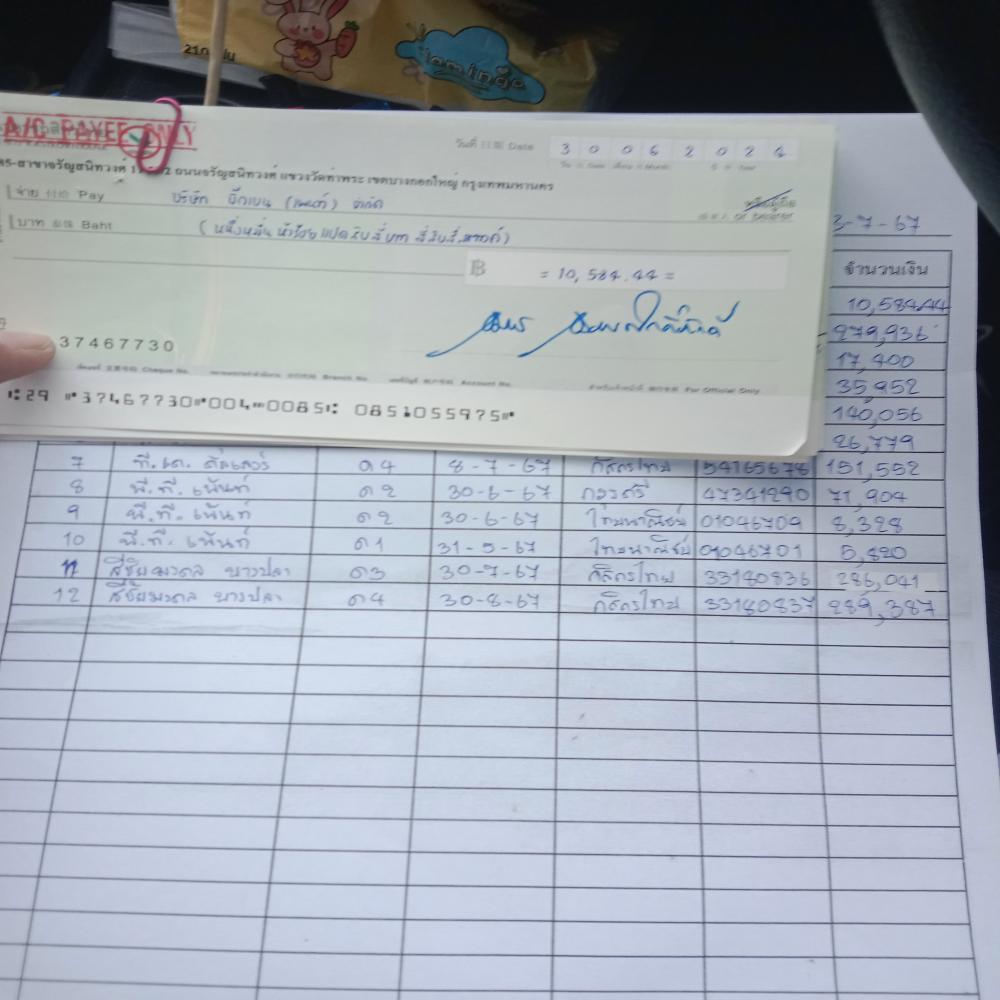 21
laminoo
A/C PAYEE ONLY
วันที่ 日期 Date 3 0 0 6 2 0 2 4
85-สาขาจรัญสนิทวงศ์ ถนนจรัญสนิทวงศ์ แขวงวัดท่าพระ เขตบางกอกใหญ่ กรุงเทพมหานคร
จ่าย 付给 Pay บริษัท จำกัด
หรือผู้ถือ
or Bearer
บาท 泰铢 Baht (หนึ่งหมื่นห้าร้อยแปดสิบสี่บาท สี่สิบสี่สตางค์)
3-7-67
฿ = 10,584.44 =
จำนวนเงิน
10,584.44
279,936
37467730
17,400
Cheque No. Branch No. Account No. สำหรับเจ้าหน้าที่ For Official Only
35,952
⑆29 ⑈37467730⑈004⑉0085⑆ 0851055975⑈
140,056
26,779
7 ที.เค. ด4 8-7-67 กสิกรไทย 54165678 151,552
8 พี.ที. เพ้นท์ ด2 30-6-67 กรุงศรี 47341290 71,904
9 พี.ที. เพ้นท์ ด2 30-6-67 ไทยพาณิชย์ 01046709 8,328
10 พี.ที. เพ้นท์ ด1 31-5-67 ไทยพาณิชย์ 01046701 5,820
11 สีชัยมงคล บางปลา ด3 30-7-67 กสิกรไทย 33180836 286,041
12 สีชัยมงคล บางปลา ด4 30-8-67 กสิกรไทย 33180837 289,387